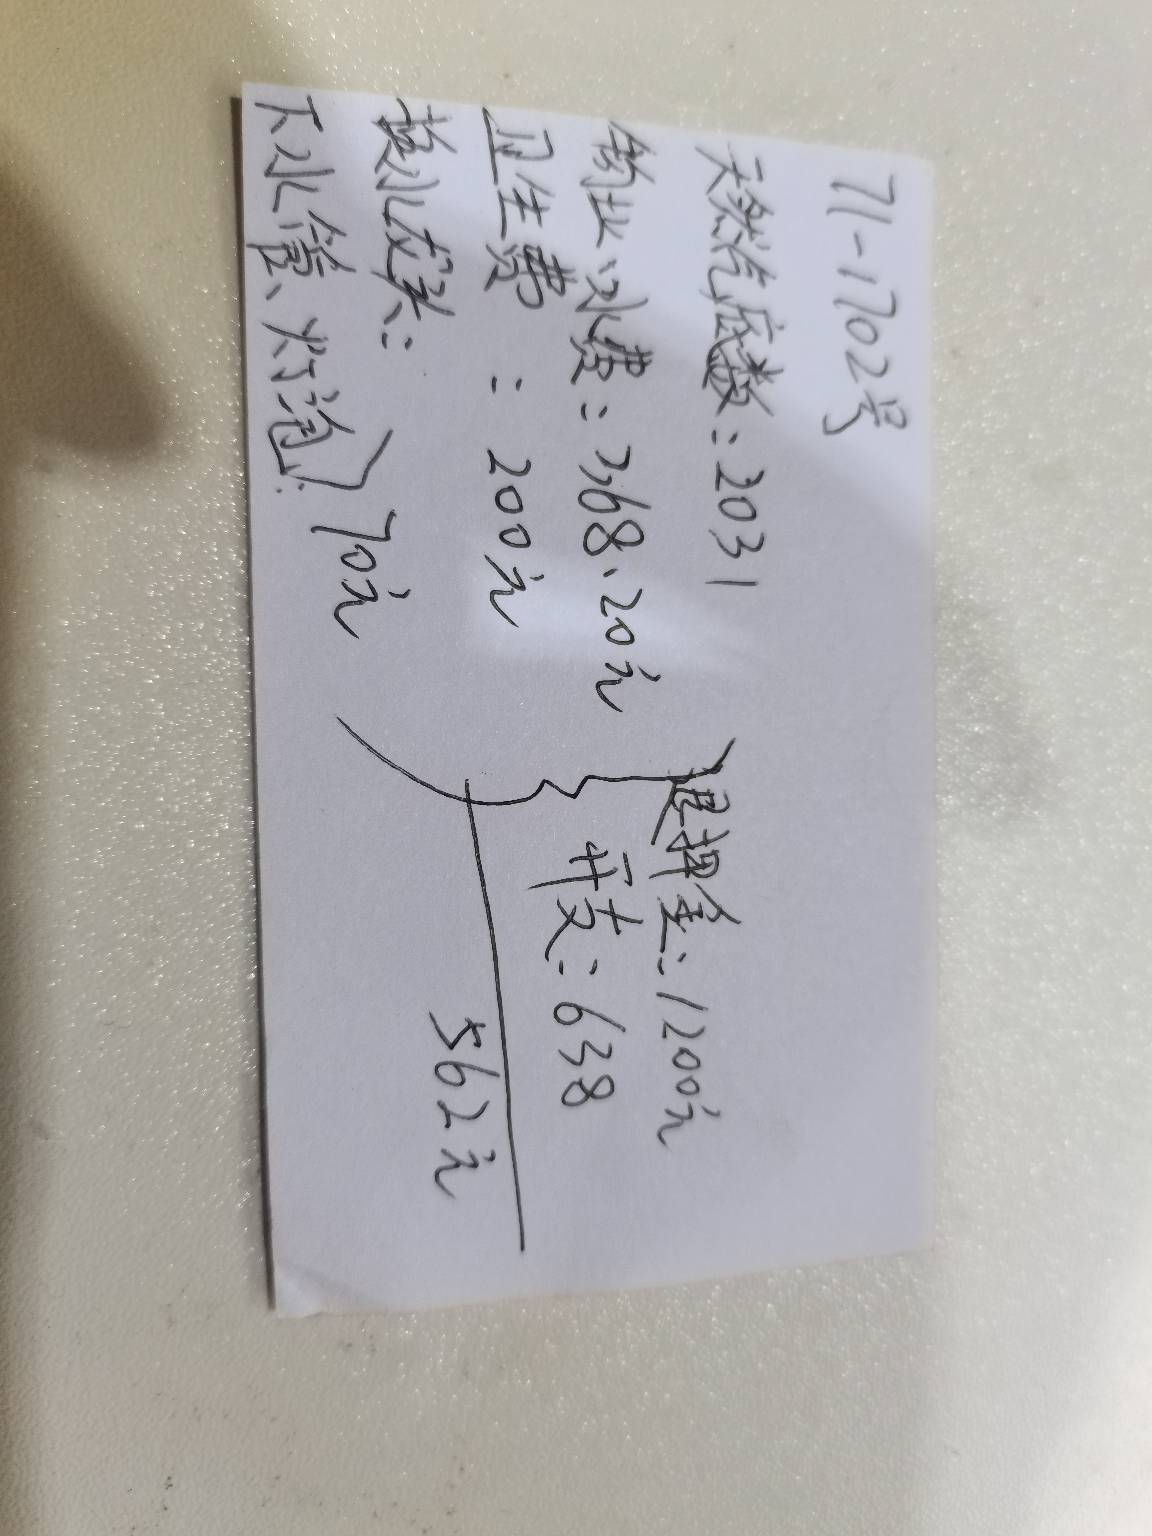 71-1702号
天然汽底数:2031
物业、水费:368.20元
卫生费:200元
换水龙头:
下水管、灯泡: 70元
退押金:1200元
开支:638
562元